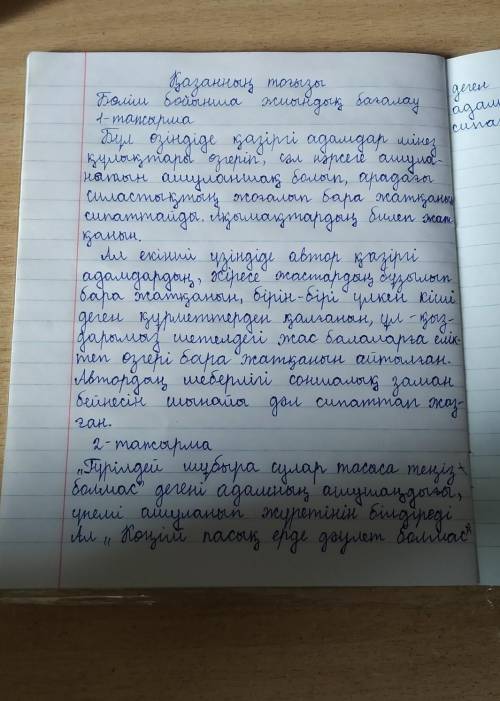 Қазанның тоғызы
Бөлім бойынша жиындық бағалау
1-тапсырма
Бұл өзіндіде қазіргі адамдар мінез
құлықтары өзгеріп, сәл нәрсеге ашула-
натын ашуланшақ болып, арадағы
силастықтың жоғалып бара жатқанын
сипаттайды. Ақымақтардың билеп жат-
қанын.
Ал екінші үзіндіде автор қазіргі
адамдардың, әсіресе жастардың бұзылып
бара жатқанын, бірін-бірі үлкен кіші
деген құрметтерден қалғанын, ұл-қыз-
дарымыз шетелдегі жас балаларға елік-
теп өзгері бара жатқанын айтылған.
Автордың шеберлігі соншалық заман
бейнесін шынайы дәл сипаттап жаз-
ған.
2-тапсырма
„Түрілдей шұбыра сулар тасыса теңіз
болмас" дегені адамның ашушаңдығы,
үнемі ашуланып жүретінін білдіреді
Ал „Көңілі пасық ерде дәулет болмас"
деген
адам
сипат